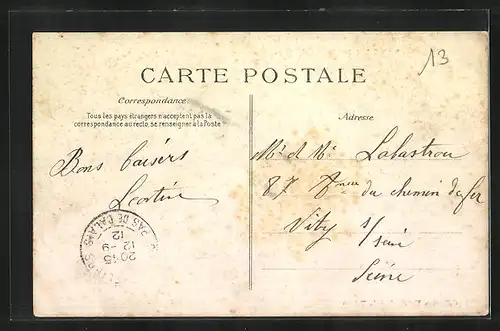 13
CARTE POSTALE
Correspondance
Tous les pays étrangers n'acceptent pas la
correspondance au recto, se renseigner à la Poste
Adresse
Bons baisers
Mr & Me Labastrou
87 du chemin de fer
Vitry s/ seine
Seine
PAS DE CALAIS
20 45
12 - 9
12